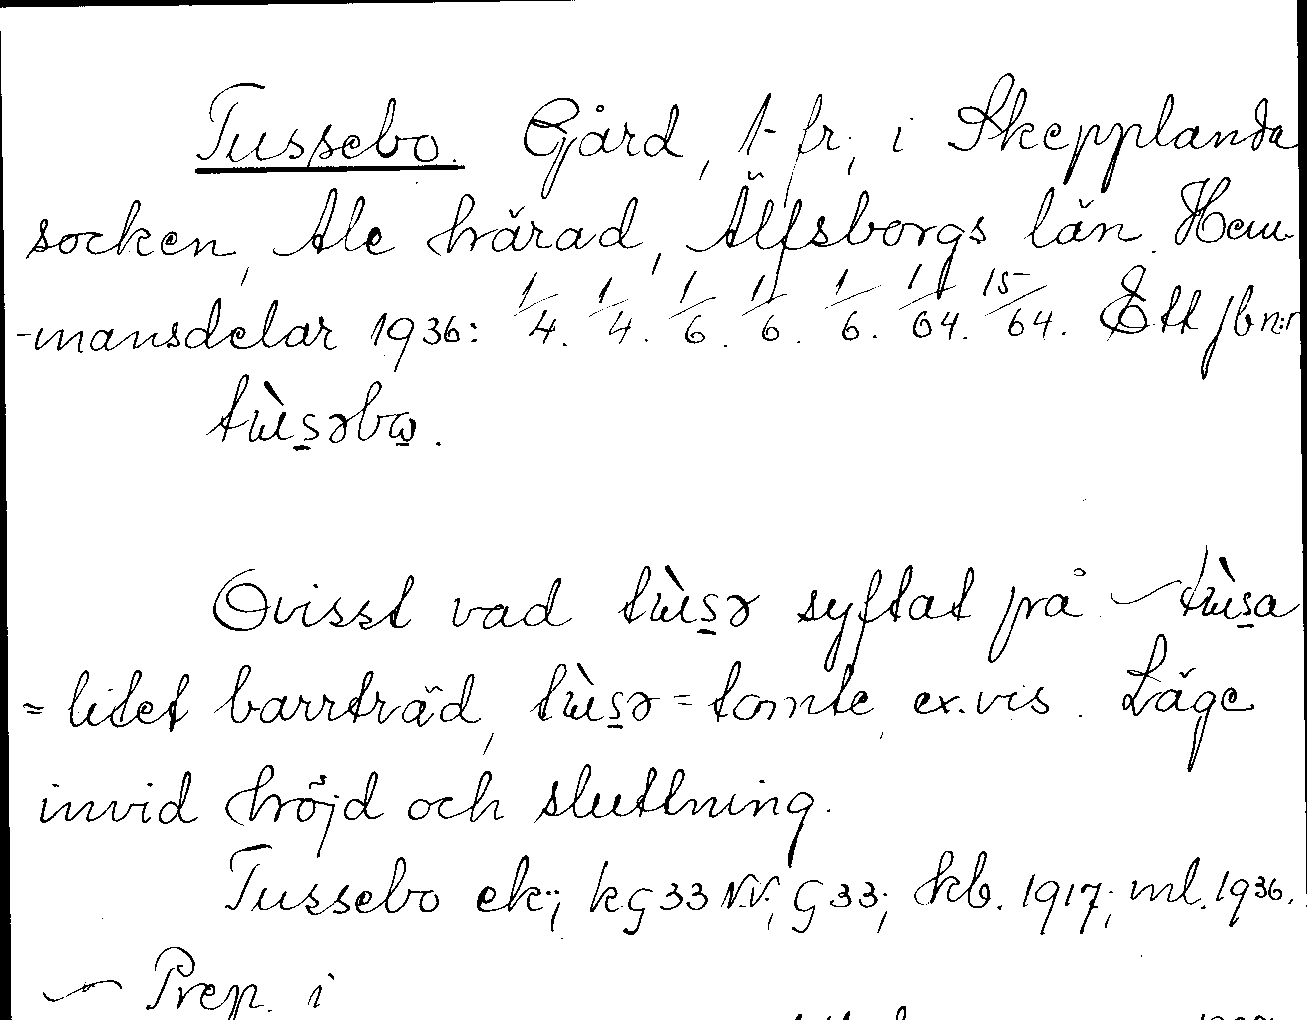 Tussebo. Gård, 1 fr., i Skepplanda
socken, Ale härad, Älfsborgs län. Hem-
-mansdelar 1936: 1/4. 1/4. 1/6. 1/6. 1/6. 1/64. 15/64. Ett jbn:r
tɯ̀s̠əbω̠.
Ovisst vad tɯ̀s̠ə syftat på ~ tɯ̀s̠a
= litet barrträd, tɯ̀s̠ə = tomte, ex.vis. Läge
invid höjd och sluttning.
Tussebo ek.; kG33 N.V.; G33; kb. 1917; ml. 1936.
~ Prep. i